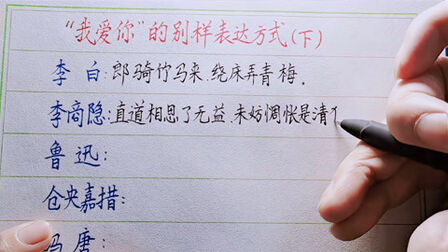 “我爱你”的别样表达方式(下)
李白:郎骑竹马来.绕床弄青梅.
李商隐:直道相思了无益.未妨惆怅是清
鲁迅:
仓央嘉措:
冯唐: